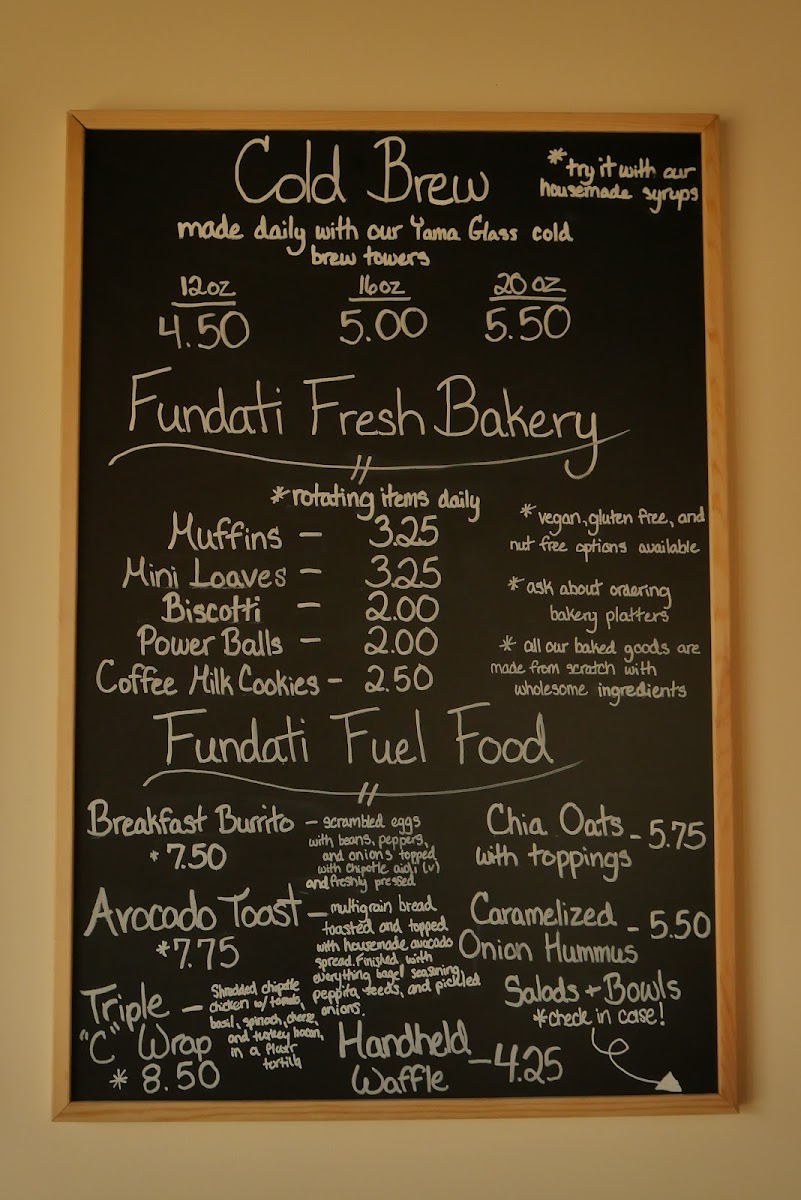 Cold Brew
*try it with our
housemade syrups
made daily with our Yama Glass cold
brew towers
12oz 16oz 20 oz
4.50 5.00 5.50
Fundati Fresh Bakery
*rotating items daily
Muffins - 3.25
Mini Loaves - 3.25
Biscotti - 2.00
Power Balls - 2.00
Coffee Milk Cookies - 2.50
*vegan, gluten free, and
nut free options available
*ask about ordering
bakery platters
* all our baked goods are
made from scratch with
wholesome ingredients
Fundati Fuel Food
Breakfast Burrito - scrambled eggs
with beans, peppers,
and onions topped
with chipotle aioli (v)
and freshly pressed
*7.50
Chia Oats - 5.75
with toppings
Avocado Toast - multigrain bread
toasted and topped
with housemade avocado
spread. Finished with
everything bagel seasoning,
peppita seeds, and pickled
onions.
*7.75
Caramelized - 5.50
Onion Hummus
Triple - Shredded chipotle
chicken w/ tomato,
basil, spinach, cheese,
and turkey bacon,
in a flour
tortilla
"C" Wrap
* 8.50
Handheld - 4.25
Waffle
Salads + Bowls
*check in case!